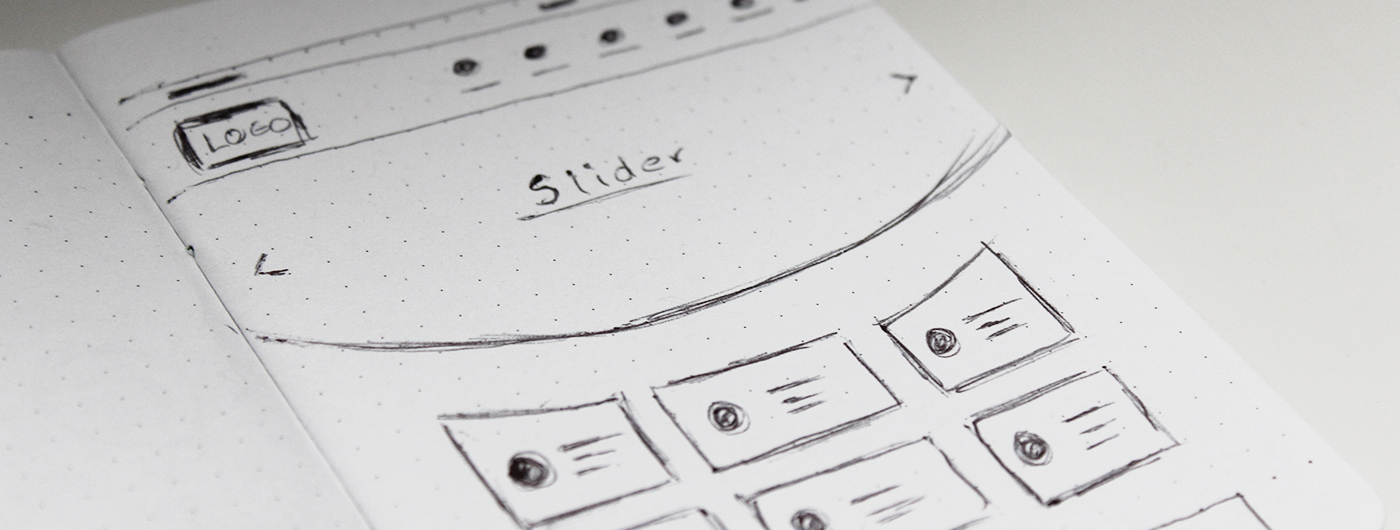 LOGO
Slider